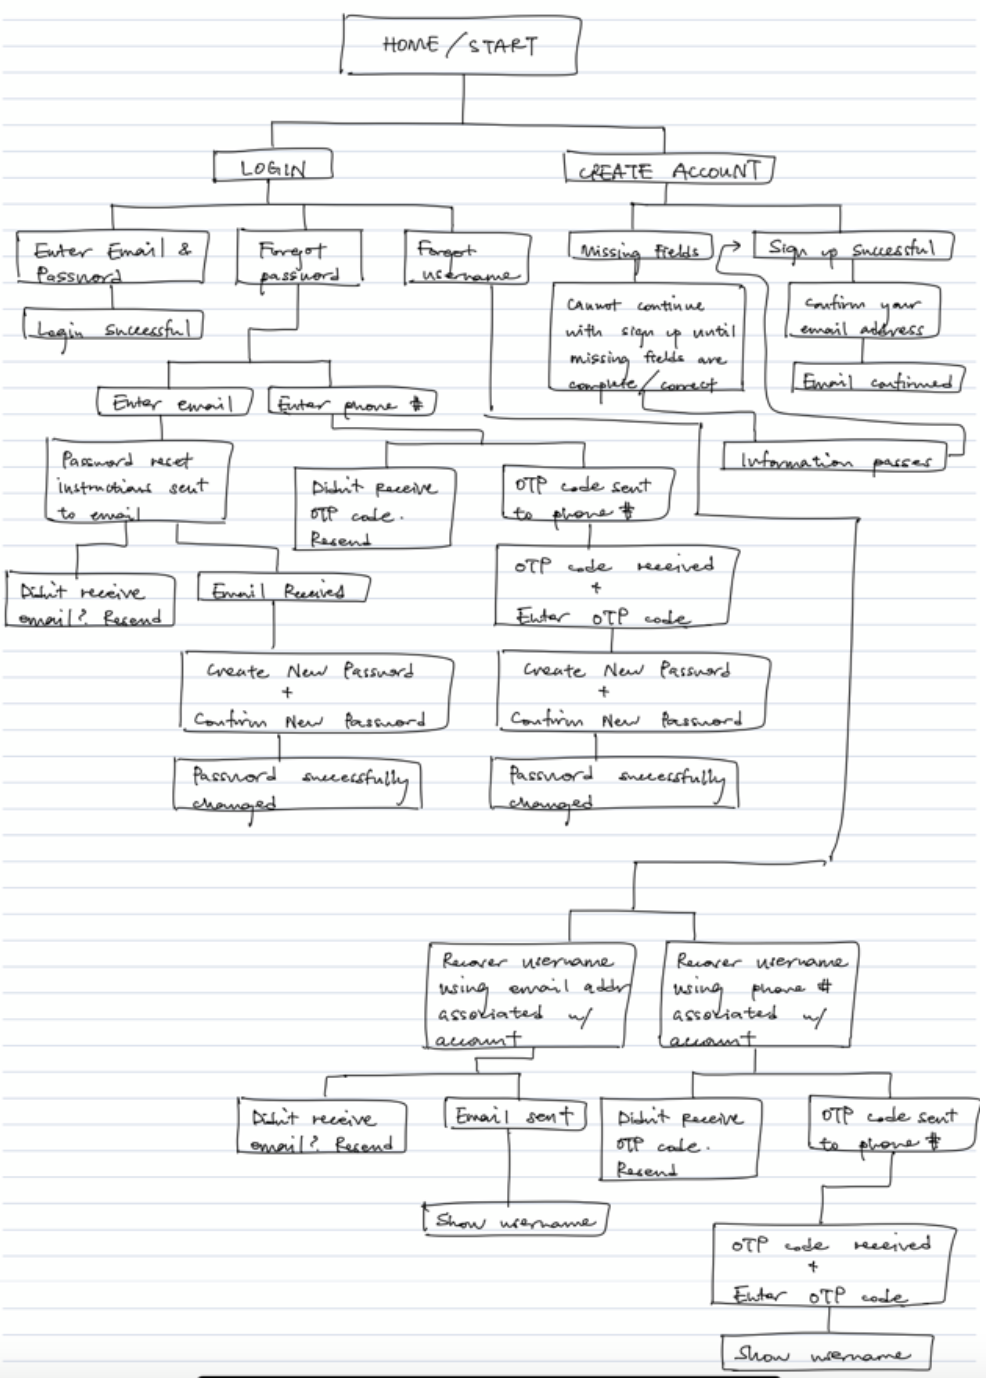 HOME/START
LOGIN
CREATE ACCOUNT
Enter Email &
Password
Forgot
password
Forgot
username
Missing fields
Sign up successful
Login successful
Cannot continue
with sign up until
missing fields are
complete/correct
Confirm your
email address
Email confirmed
Enter email
Enter phone #
Information passes
Password reset
instructions sent
to email
Didn't receive
OTP code.
Resend
OTP code sent
to phone #
Didn't receive
email? Resend
Email Received
OTP code received
+
Enter OTP code
Create New Password
+
Confirm New Password
Create New Password
+
Confirm New Password
Password successfully
changed
Password successfully
changed
Recover username
using email addr
associated w/
account
Recover username
using phone #
associated w/
account
Didn't receive
email? Resend
Email sent
Didn't receive
OTP code.
Resend
OTP code sent
to phone #
Show username
OTP code received
+
Enter OTP code
Show username